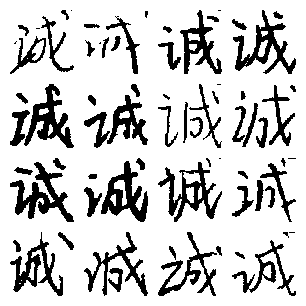 诚诚诚诚
诚诚诚诚
诚诚诚诚
诚诚诚诚